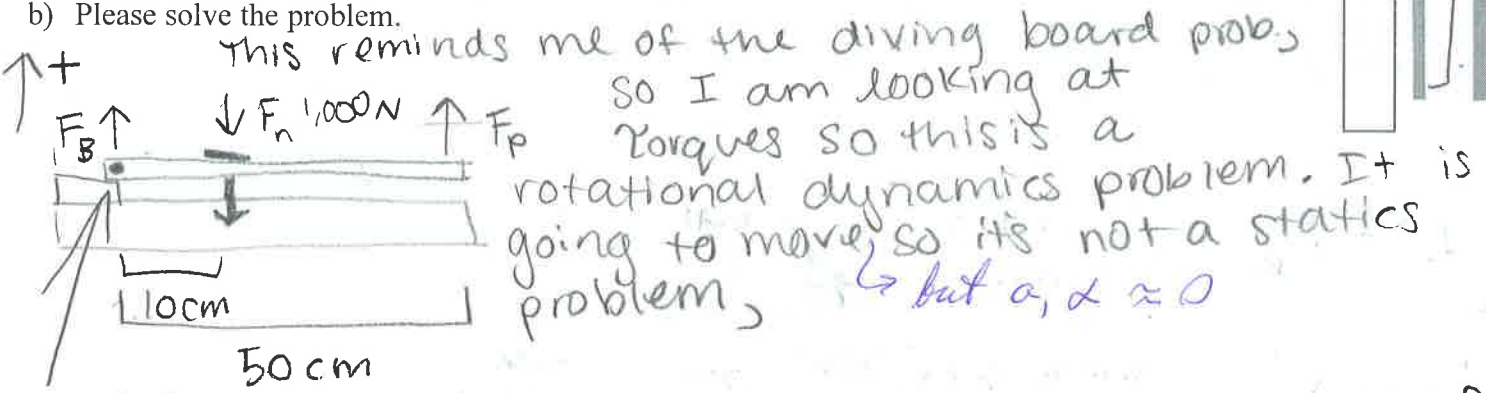 b) Please solve the problem.
This reminds me of the diving board prob,
+
so I am looking at
F_B
F_n 1,000N
F_p
torques so this is a
rotational dynamics problem. It is
going to move, so it's not a statics
↳ but a, α ≈ 0
problem,
10cm
50cm